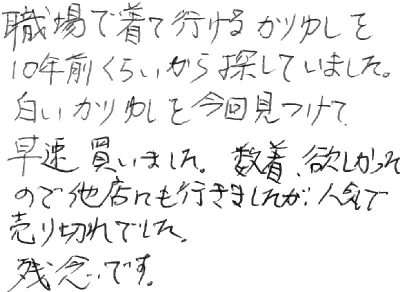 職場で着て行けるかりゆしを
10年前くらいから探していました。
白いかりゆしを今回見つけて
早速買いました。数着、欲しかった
ので他店にも行きましたが、人気で
売り切れでした。
残念です。